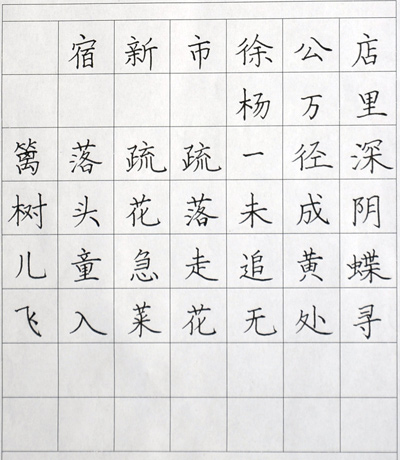 宿新市徐公店
杨万里
篱落疏疏一径深
树头花落未成阴
儿童急走追黄蝶
飞入菜花无处寻